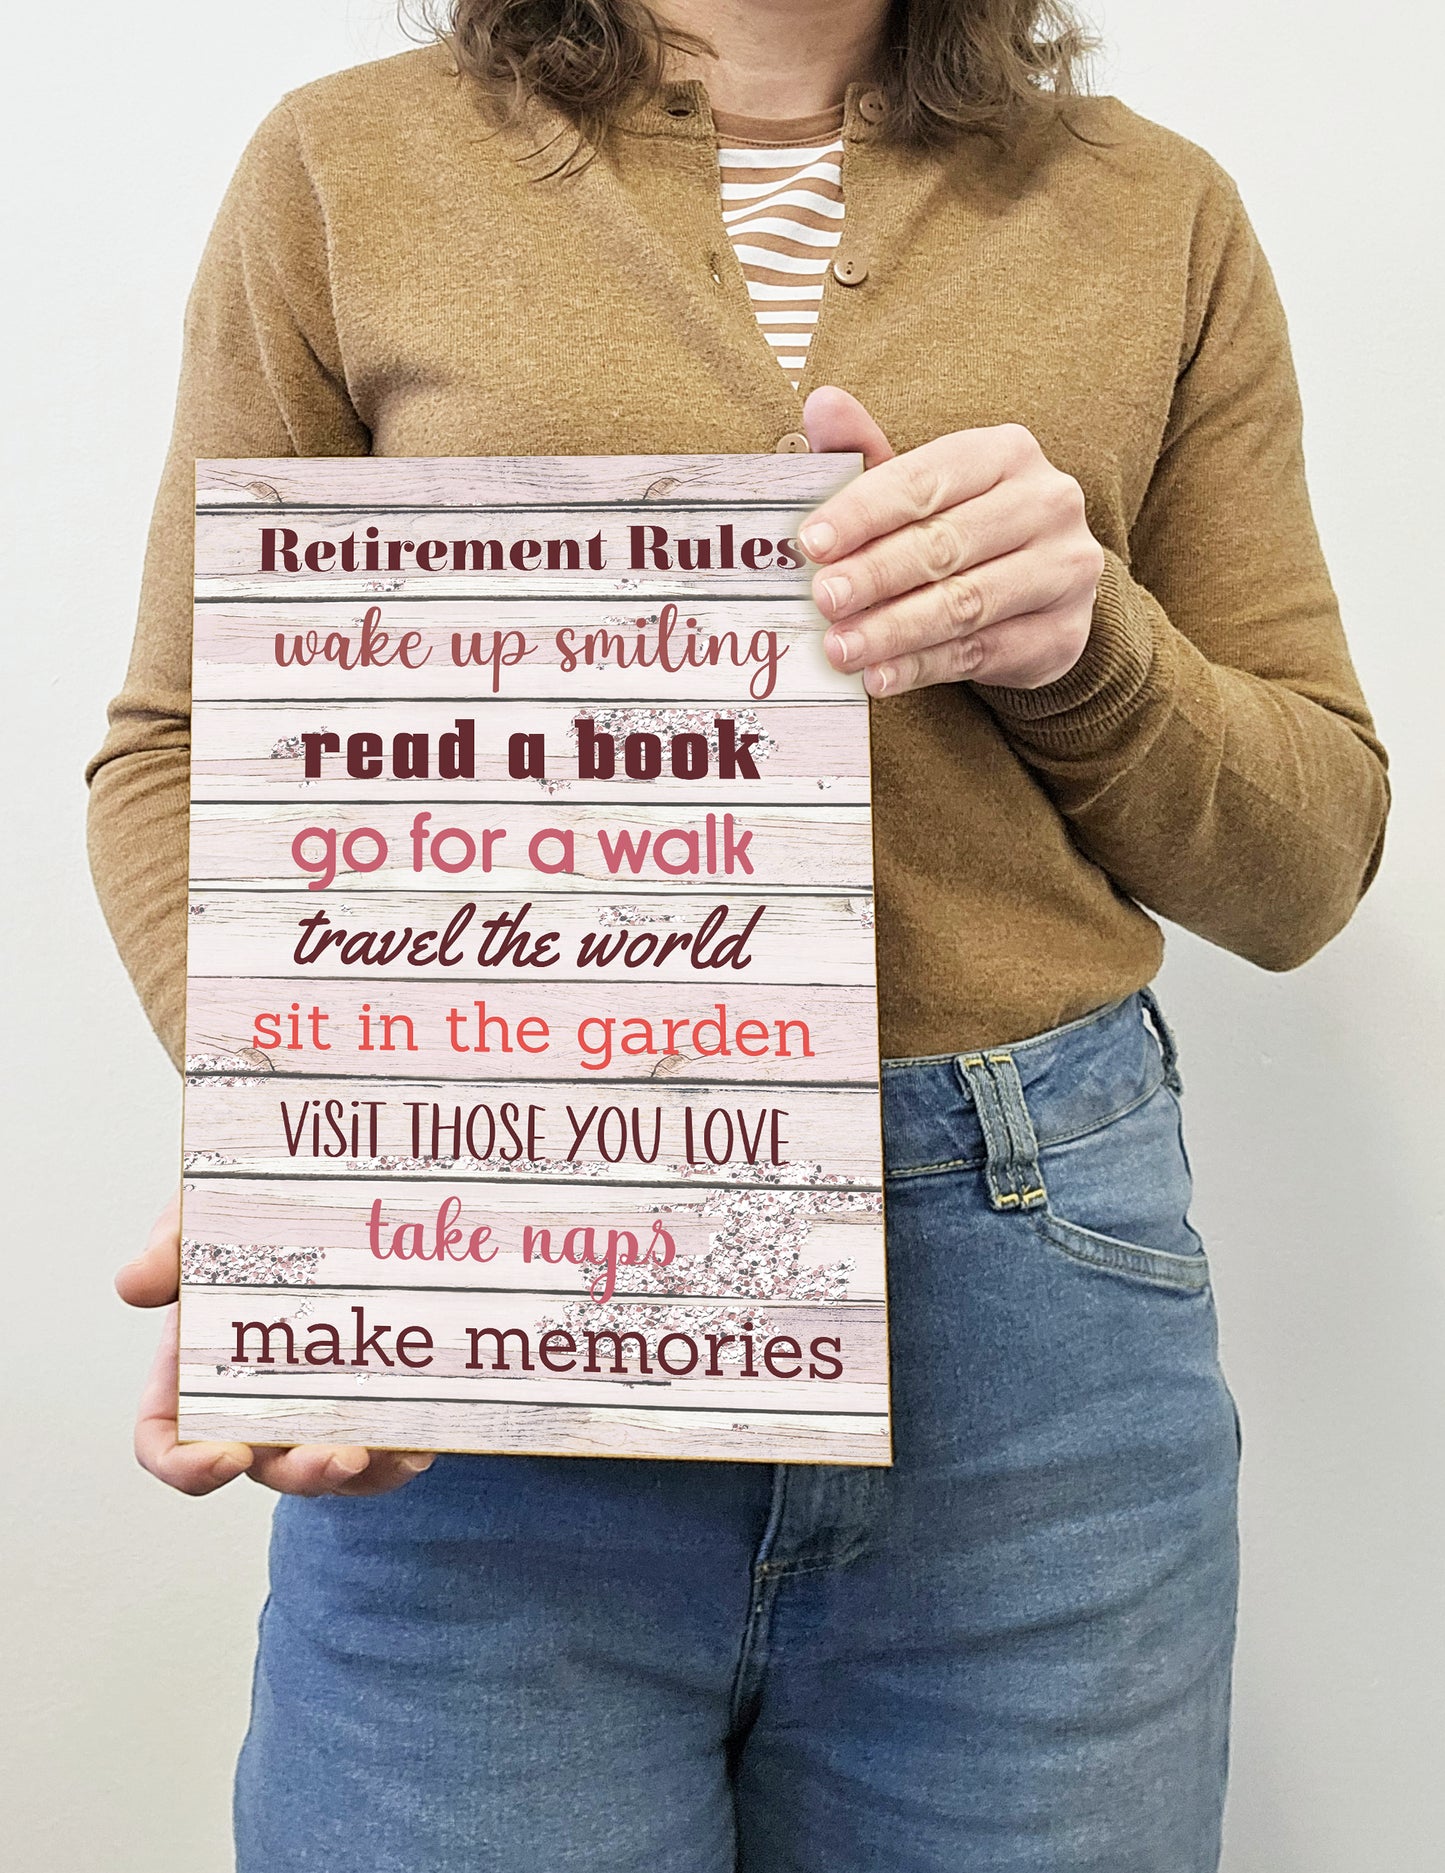 Retirement Rules
wake up smiling
read a book
go for a walk
travel the world
sit in the garden
ViSiT THOSE YOU LOVE
take naps
make memories